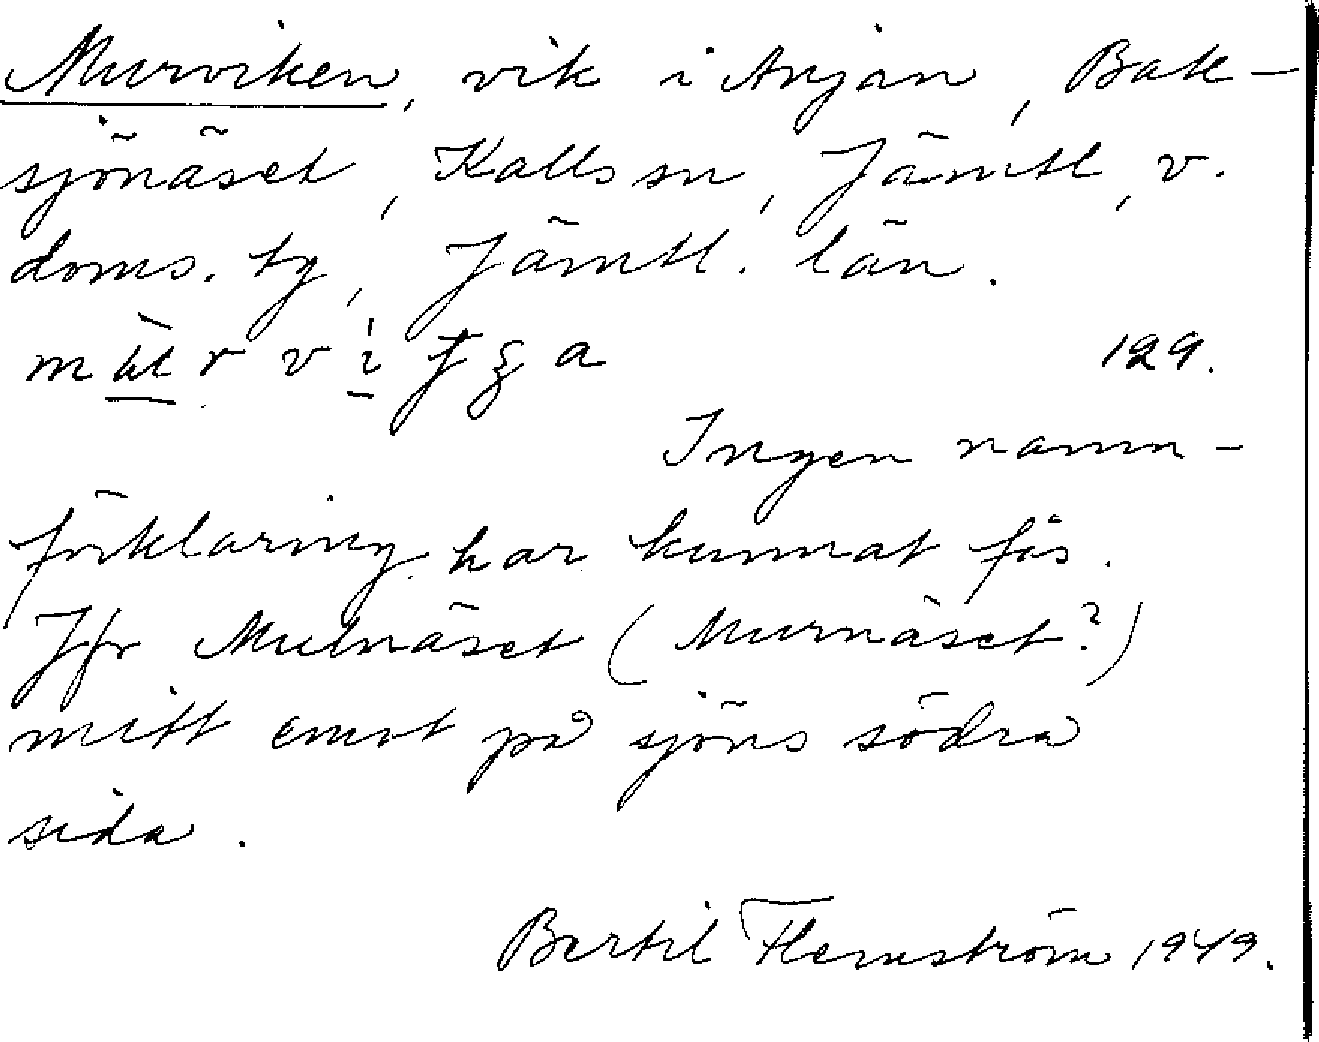 Murviken, vik i Anjan, Bak-
sjönäset, Kalls sn, Jämtl, v.
doms. tg, Jämtl. län.
129.
Ingen namn-
förklaring har kunnat fås.
Jfr Mulnäset (Murnäset?)
mitt emot på sjöns södra
sida.
Bertil Flemström 1949.